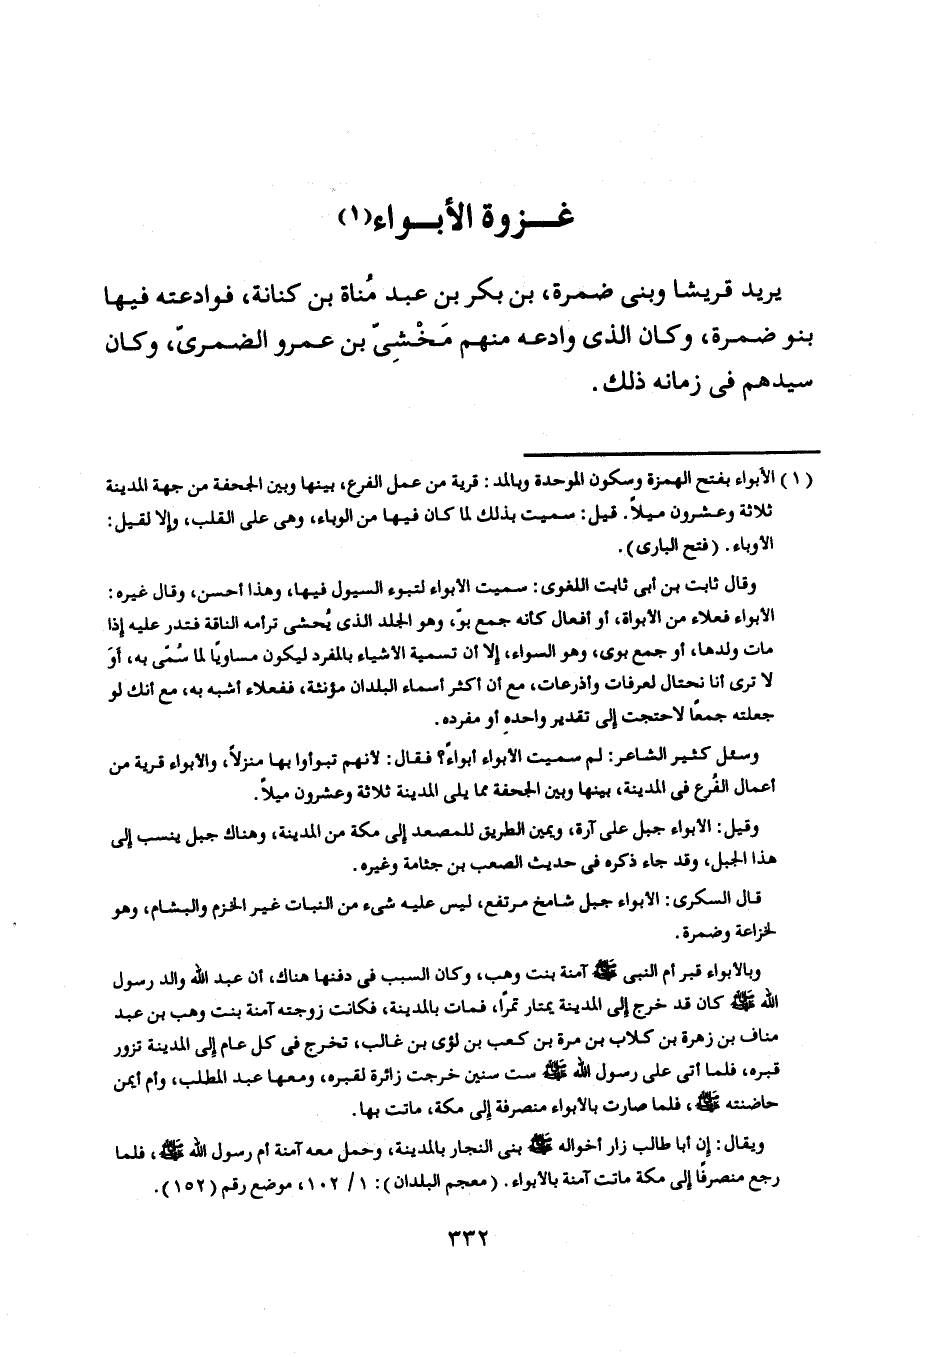 غـــزوة الأبـــواء(١)
يريد قريشا وبنى ضمرة، بن بكر بن عبد مُناة بن كنانة، فوادعته فيها
بنو ضمرة، وكان الذى وادعه منهم مَخْشِىّ بن عمرو الضمرىّ، وكان
سيدهم فى زمانه ذلك.
(١) الأبواء بفتح الهمزة وسكون الموحدة وبالمد: قرية من عمل الفرع، بينها وبين الجحفة من جهة المدينة
ثلاثة وعشرون ميلاً. قيل: سميت بذلك لما كان فيها من الوباء، وهى على القلب، وإلا لقيل:
الأوباء. (فتح البارى).
وقال ثابت بن أبى ثابت اللغوى: سميت الأبواء لتبوء السيول فيها، وهذا أحسن، وقال غيره:
الأبواء فعلاء من الأبواة، أو أفعال كأنه جمع بوّ، وهو الجلد الذى يُحشى ترأمه الناقة فتدر عليه إذا
مات ولدها، أو جمع بوى، وهو السواء، إلا أن تسمية الأشياء بالمفرد ليكون مساويًا لما سُمّى به، أوَ
لا ترى أنا نحتال لعرفات وأذرعات، مع أن أكثر أسماء البلدان مؤنثة، ففعلاء أشبه به، مع أنك لو
جعلته جمعًا لاحتجت إلى تقدير واحده أو مفرده.
وسئل كثير الشاعر: لم سميت الأبواء أبواءً؟ فقال: لأنهم تبوأوا بها منزلاً، والأبواء قرية من
أعمال الفُرع فى المدينة، بينها وبين الجحفة مما يلى المدينة ثلاثة وعشرون ميلاً.
وقيل: الأبواء جبل على آرة، ويمين الطريق للمصعد إلى مكة من المدينة، وهناك جبل ينسب إلى
هذا الجبل، وقد جاء ذكره فى حديث الصعب بن جثامة وغيره.
قال السكرى: الأبواء جبل شامخ مرتفع، ليس عليه شىء من النبات غير الخزم والبشام، وهو
لخزاعة وضمرة.
وبالأبواء قبر أم النبى ﷺ آمنة بنت وهب، وكان السبب فى دفنها هناك، أن عبد الله والد رسول
الله ﷺ كان قد خرج إلى المدينة يمتار تمرًا، فمات بالمدينة، فكانت زوجته آمنة بنت وهب بن عبد
مناف بن زهرة بن كلاب بن مرة بن كعب بن لؤى بن غالب، تخرج فى كل عام إلى المدينة تزور
قبره، فلما أتى على رسول الله ﷺ ست سنين خرجت زائرة لقبره، ومعها عبد المطلب، وأم أيمن
حاضنته ﷺ، فلما صارت بالأبواء منصرفة إلى مكة، ماتت بها.
ويقال: إن أبا طالب زار أخواله ﷺ بنى النجار بالمدينة، وحمل معه آمنة أم رسول الله ﷺ، فلما
رجع منصرفًا إلى مكة ماتت آمنة بالأبواء. (معجم البلدان): ١/ ١٠٢، موضع رقم (١٥٢).
٣٣٢